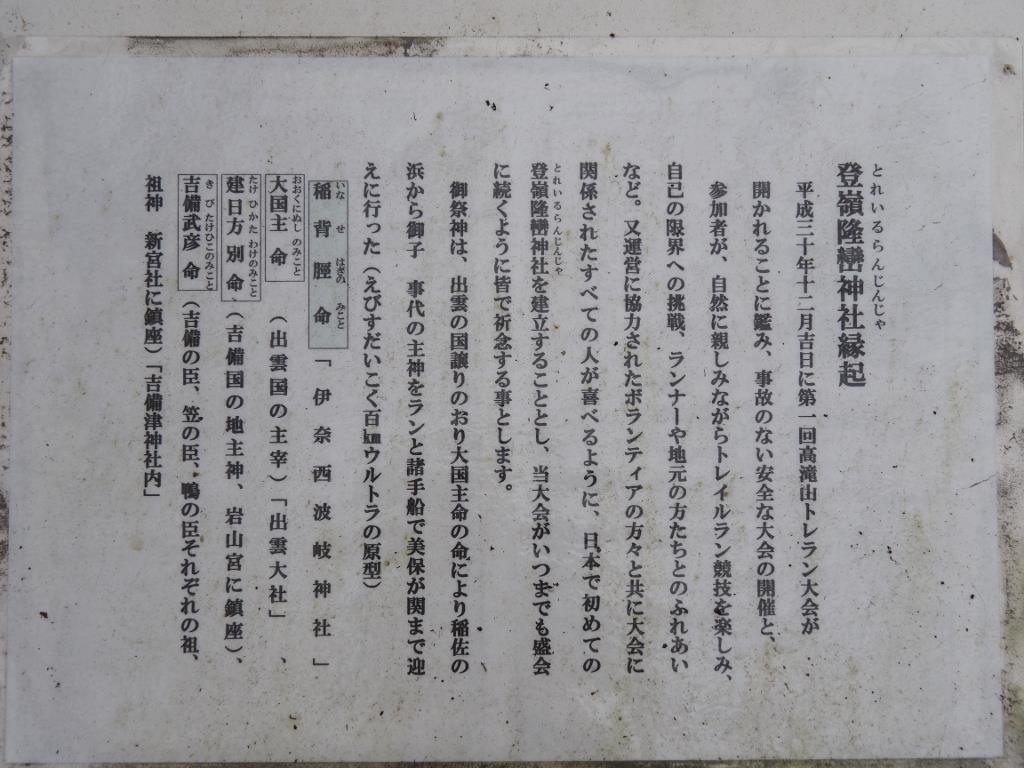 登嶺隆巒神社縁起
とれいるらんじんじゃ
平成三十年十二月吉日に第一回高滝山トレラン大会が
開かれることに鑑み、事故のない安全な大会の開催と、
参加者が、自然に親しみながらトレイルラン競技を楽しみ、
自己の限界への挑戦、ランナーや地元の方たちとのふれあい
など。又運営に協力されたボランティアの方々と共に大会に
関係されたすべての人が喜べるように、日本で初めての
登嶺隆巒神社を建立することとし、当大会がいつまでも盛会
とれいるらんじんじゃ
に続くように皆で祈念する事とします。
御祭神は、出雲の国譲りのおり大国主命の命により稲佐の
浜から御子 事代の主神をランと諸手船で美保が関まで迎
えに行った(えびすだいこく百㎞ウルトラの原型)
稲背脛命「伊奈西波岐神社」
いな せ はぎの みこと
大国主命 (出雲国の主宰)「出雲大社」、
おおくにぬし のみこと
建日方別命、(吉備国の地主神、岩山宮に鎮座)、
たけ ひかた わけのみこと
吉備武彦命 (吉備の臣、笠の臣、鴨の臣それぞれの祖、
き び たけひこのみこと
祖神 新宮社に鎮座)「吉備津神社内」